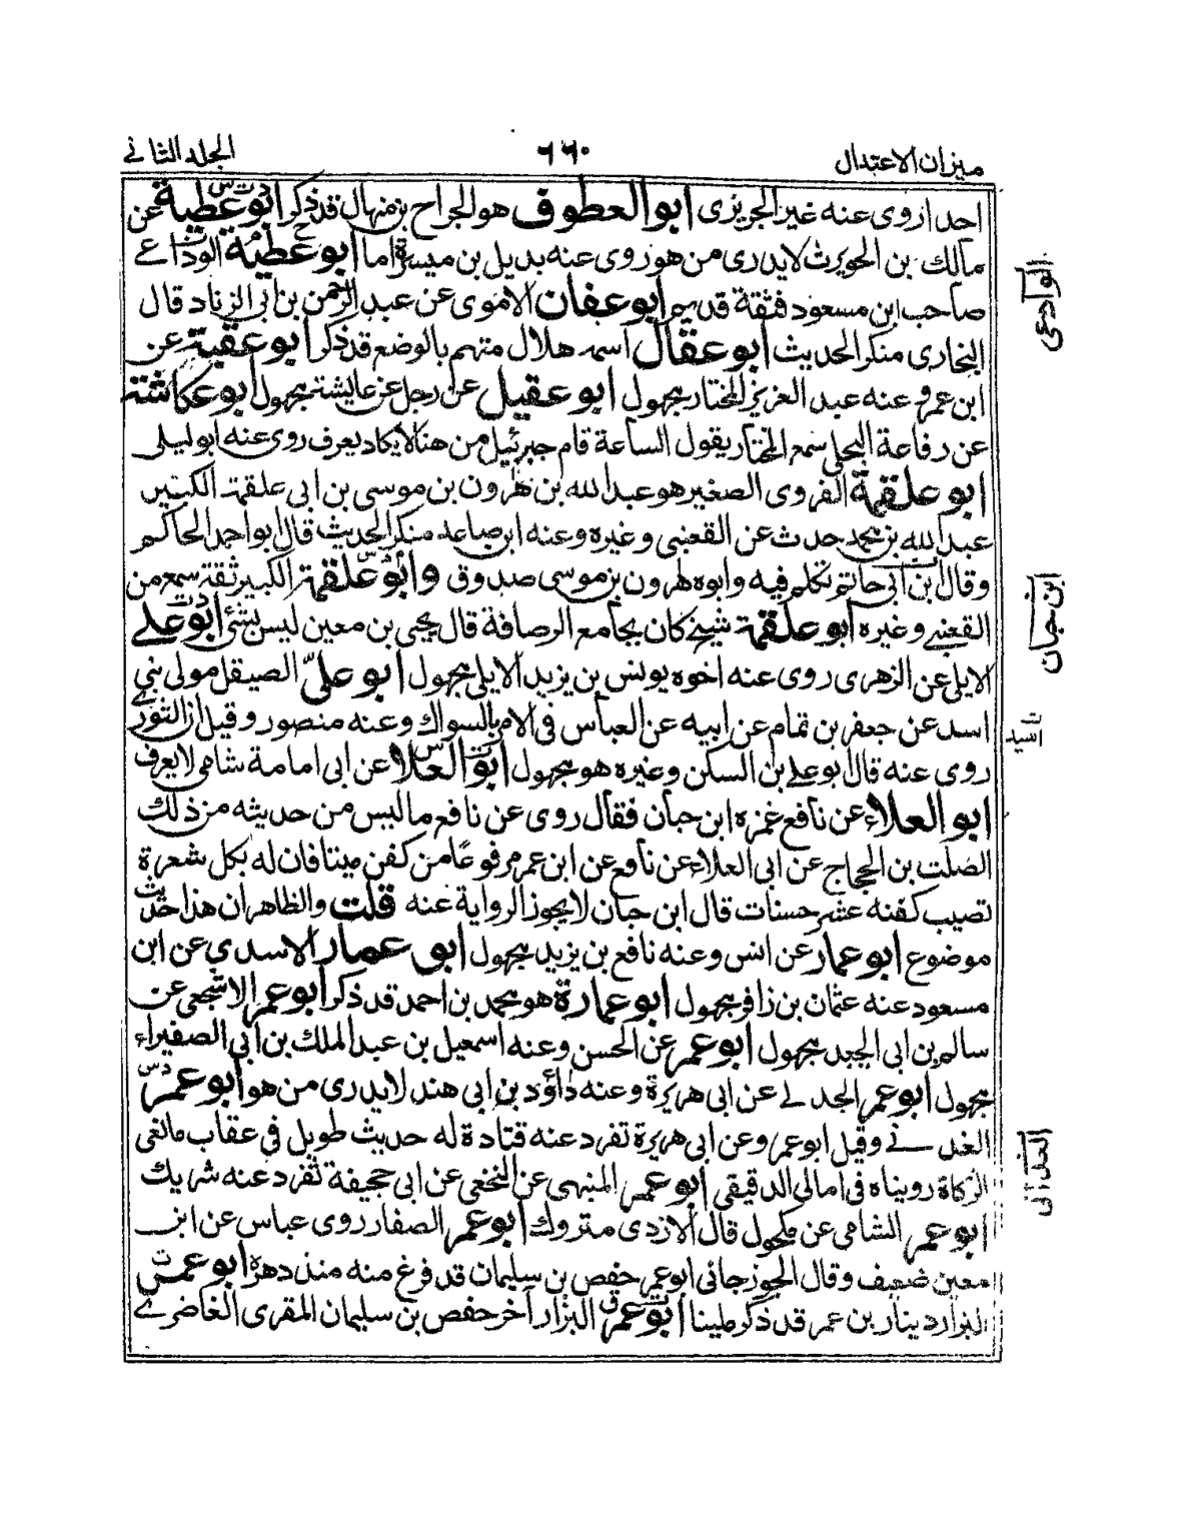 ميزان الاعتدال
٦٦٠
الجلد الثاني
احدا روى عنه غير الجريري ابو العطوف هو الجراح بن منهال قد ذكر ابو عطية عن
مالك بن الحويرث لا يدرى من هو روى عنه بديل بن ميسرة اما ابو عطية الوداعے
صاحب ابن مسعود فثقة قديم ابو عفان الاموى عن عبد الرحمن بن ابى الزناد قال
البخارى منكر الحديث ابو عقال اسمه هلال متهم بالوضع قد ذكر ابو عقبة عن
ابن عمر و عنه عبد العزيز المختار مجهول ابو عقيل عن رجل عن عايشة مجهول ابو عكاشة
عن رفاعة البجلى سمع المختار يقول الساعة قام جبرئيل من هنا لا يكاد يعرف روى عنه ابو ليلى
ابو علقمة الفروى الصغير هو عبد الله بن هٰرون بن موسى بن ابى علقمة الكبير
عبد الله بن محمد حدث عن القعنبى وغيره وعنه ابن صاعد منكر الحديث قال ابو احمد الحاكم
وقال ابن ابى حاتم تكلم فيه وابوه هٰرون بن موسى صدوق وابو علقمة الكبير ثقة سمع من
القعنبے وغيره ابو علقمة شيخ كان بجامع الرصافة قال يحيى بن معين ليس بشئ ابو علے
الايلى عن الزهرى روى عنه اخوه يونس بن يزيد الايلى مجهول ابو علىّ الصيقل مولى بنى
اسد عن جعفر بن تمام عن ابيه عن العباس فى الامر بالسواك وعنه منصور وقيل ان الثورے
روى عنه قال ابو على بن السكن وغيره هو مجهول ابو العلا عن ابى امامة شامى لا يعرف
ابو العلاء عن نافع غمزه ابن حبان فقال روى عن نافع ما ليس من حديثه من ذلك
الصلت بن الحجاج عن ابى العلاء عن نافع عن ابن عمر مرفوعًا من كفن ميتا فان له بكل شعرة
تصيب كفنه عشر حسنات قال ابن حبان لا يجوز الرواية عنه قلت والظاهر ان هذا حديث
موضوع ابو عمار عن انس وعنه نافع بن يزيد مجهول ابو عمار الاسدي عن ابن
مسعود عنه عثمان بن زافر مجهول ابو عمارة هو محمد بن احمد قد ذكر ابو عمر الاشجعى عن
سالم بن ابى الجعد مجهول ابو عمر عن الحسن وعنه اسمعيل بن عبد الملك بن ابي الصفيراء
مجهول ابو عمر الجدلے عن ابى هريرة وعنه داؤد بن ابى هند لا يدرى من هو ابو عمر
الغدانے وقيل ابو عمرو عن ابى هريرة تفرد عنه قتادة له حديث طويل فى عقاب مانعى
الزكاة رويناه فى امالى الدقيقى ابو عمر المنبهى عن النخعى عن ابى جحيفة تفرد عنه شريك
ابو عمر الشامى عن مكحول قال الازدى متروك ابو عمر الصفار روى عباس عن ابن
معين ضعيف وقال الجوزجانى ابو عمر حفص بن سليمان قد فرغ منه منذ دهر ابو عمر
البزار دينار بن عمر قد ذكر ملينا ابو عمر البزار آخر حفص بن سليمان المقرى الغاضرے
الوادعى
ابن حبان
اسيد
الغدانى